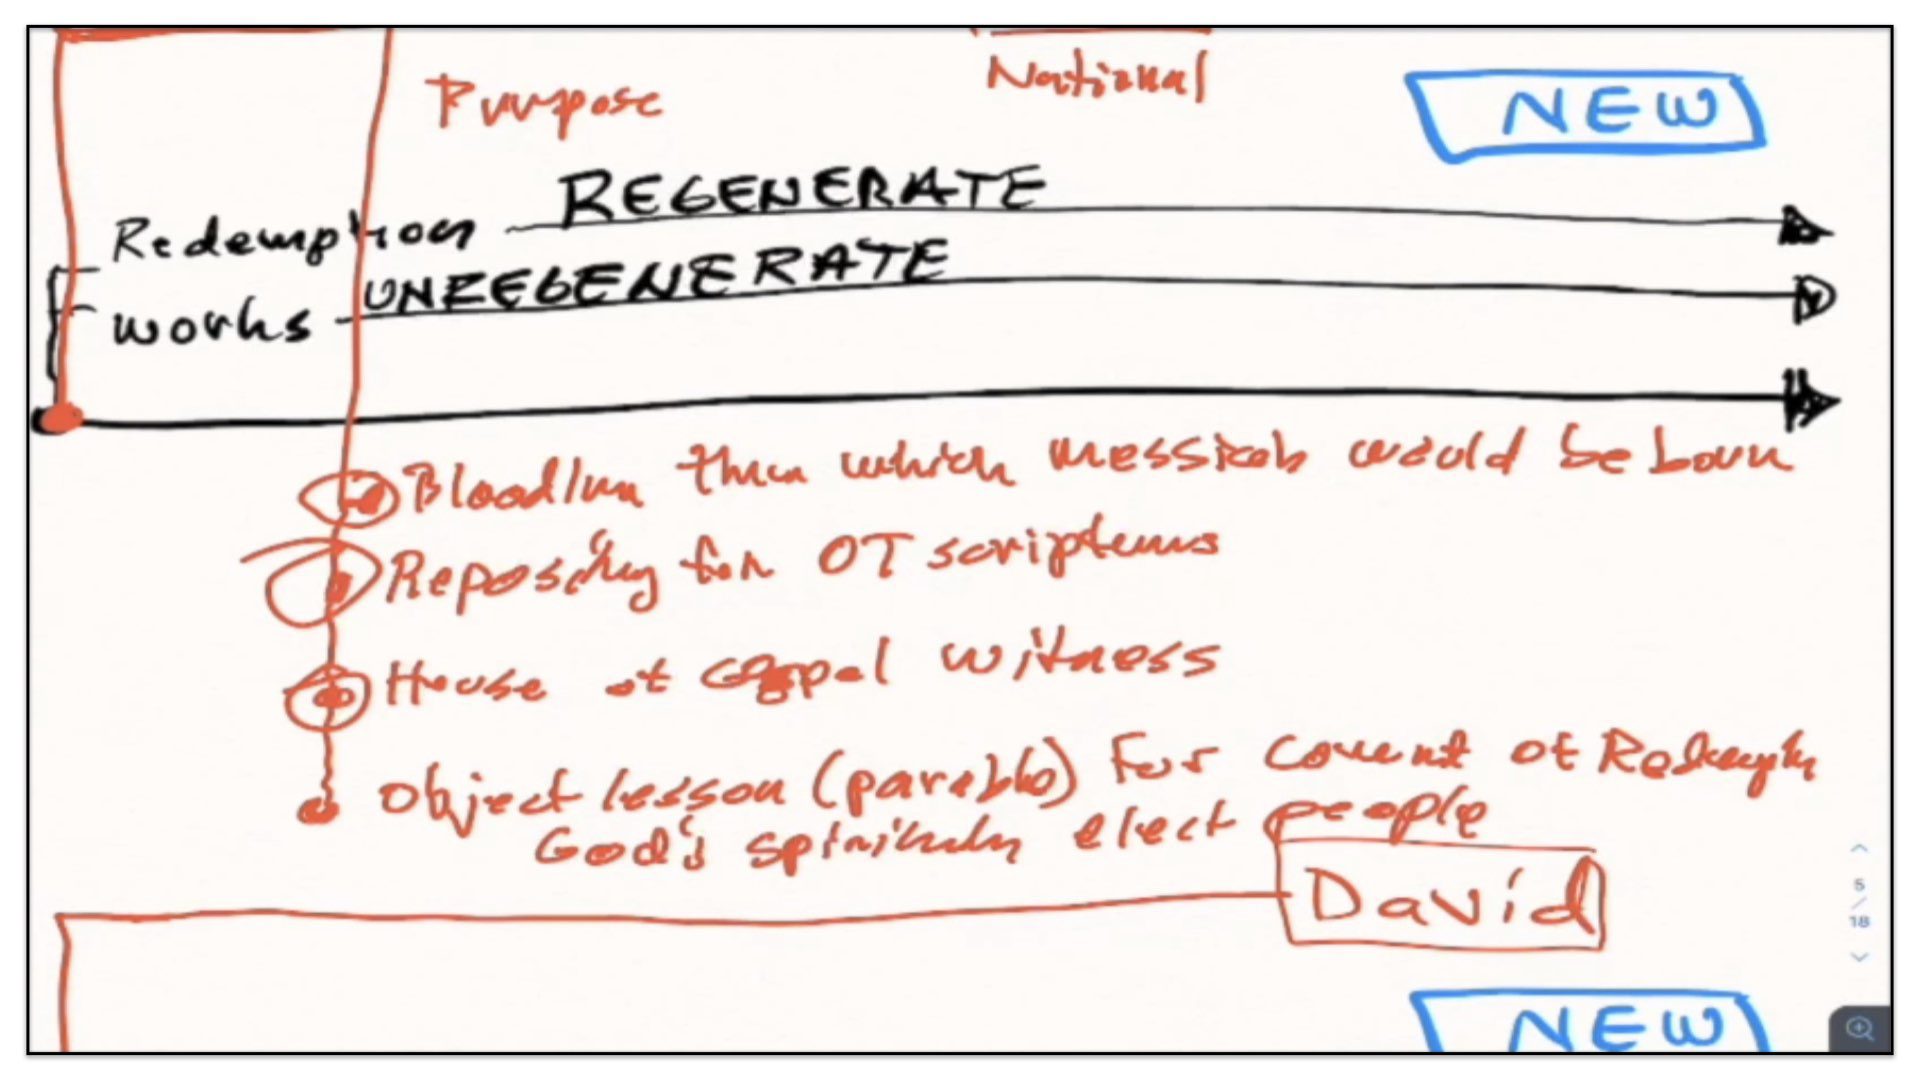 National
Purpose
NEW
REGENERATE
Redemption
UNREGENERATE
works
Bloodline thru which messiah would be born
Repository for OT scriptures
House of Gospel witness
Object lesson (parable) For Covenant of Redemption
God's spiritually elect people
David
5
/
18
NEW